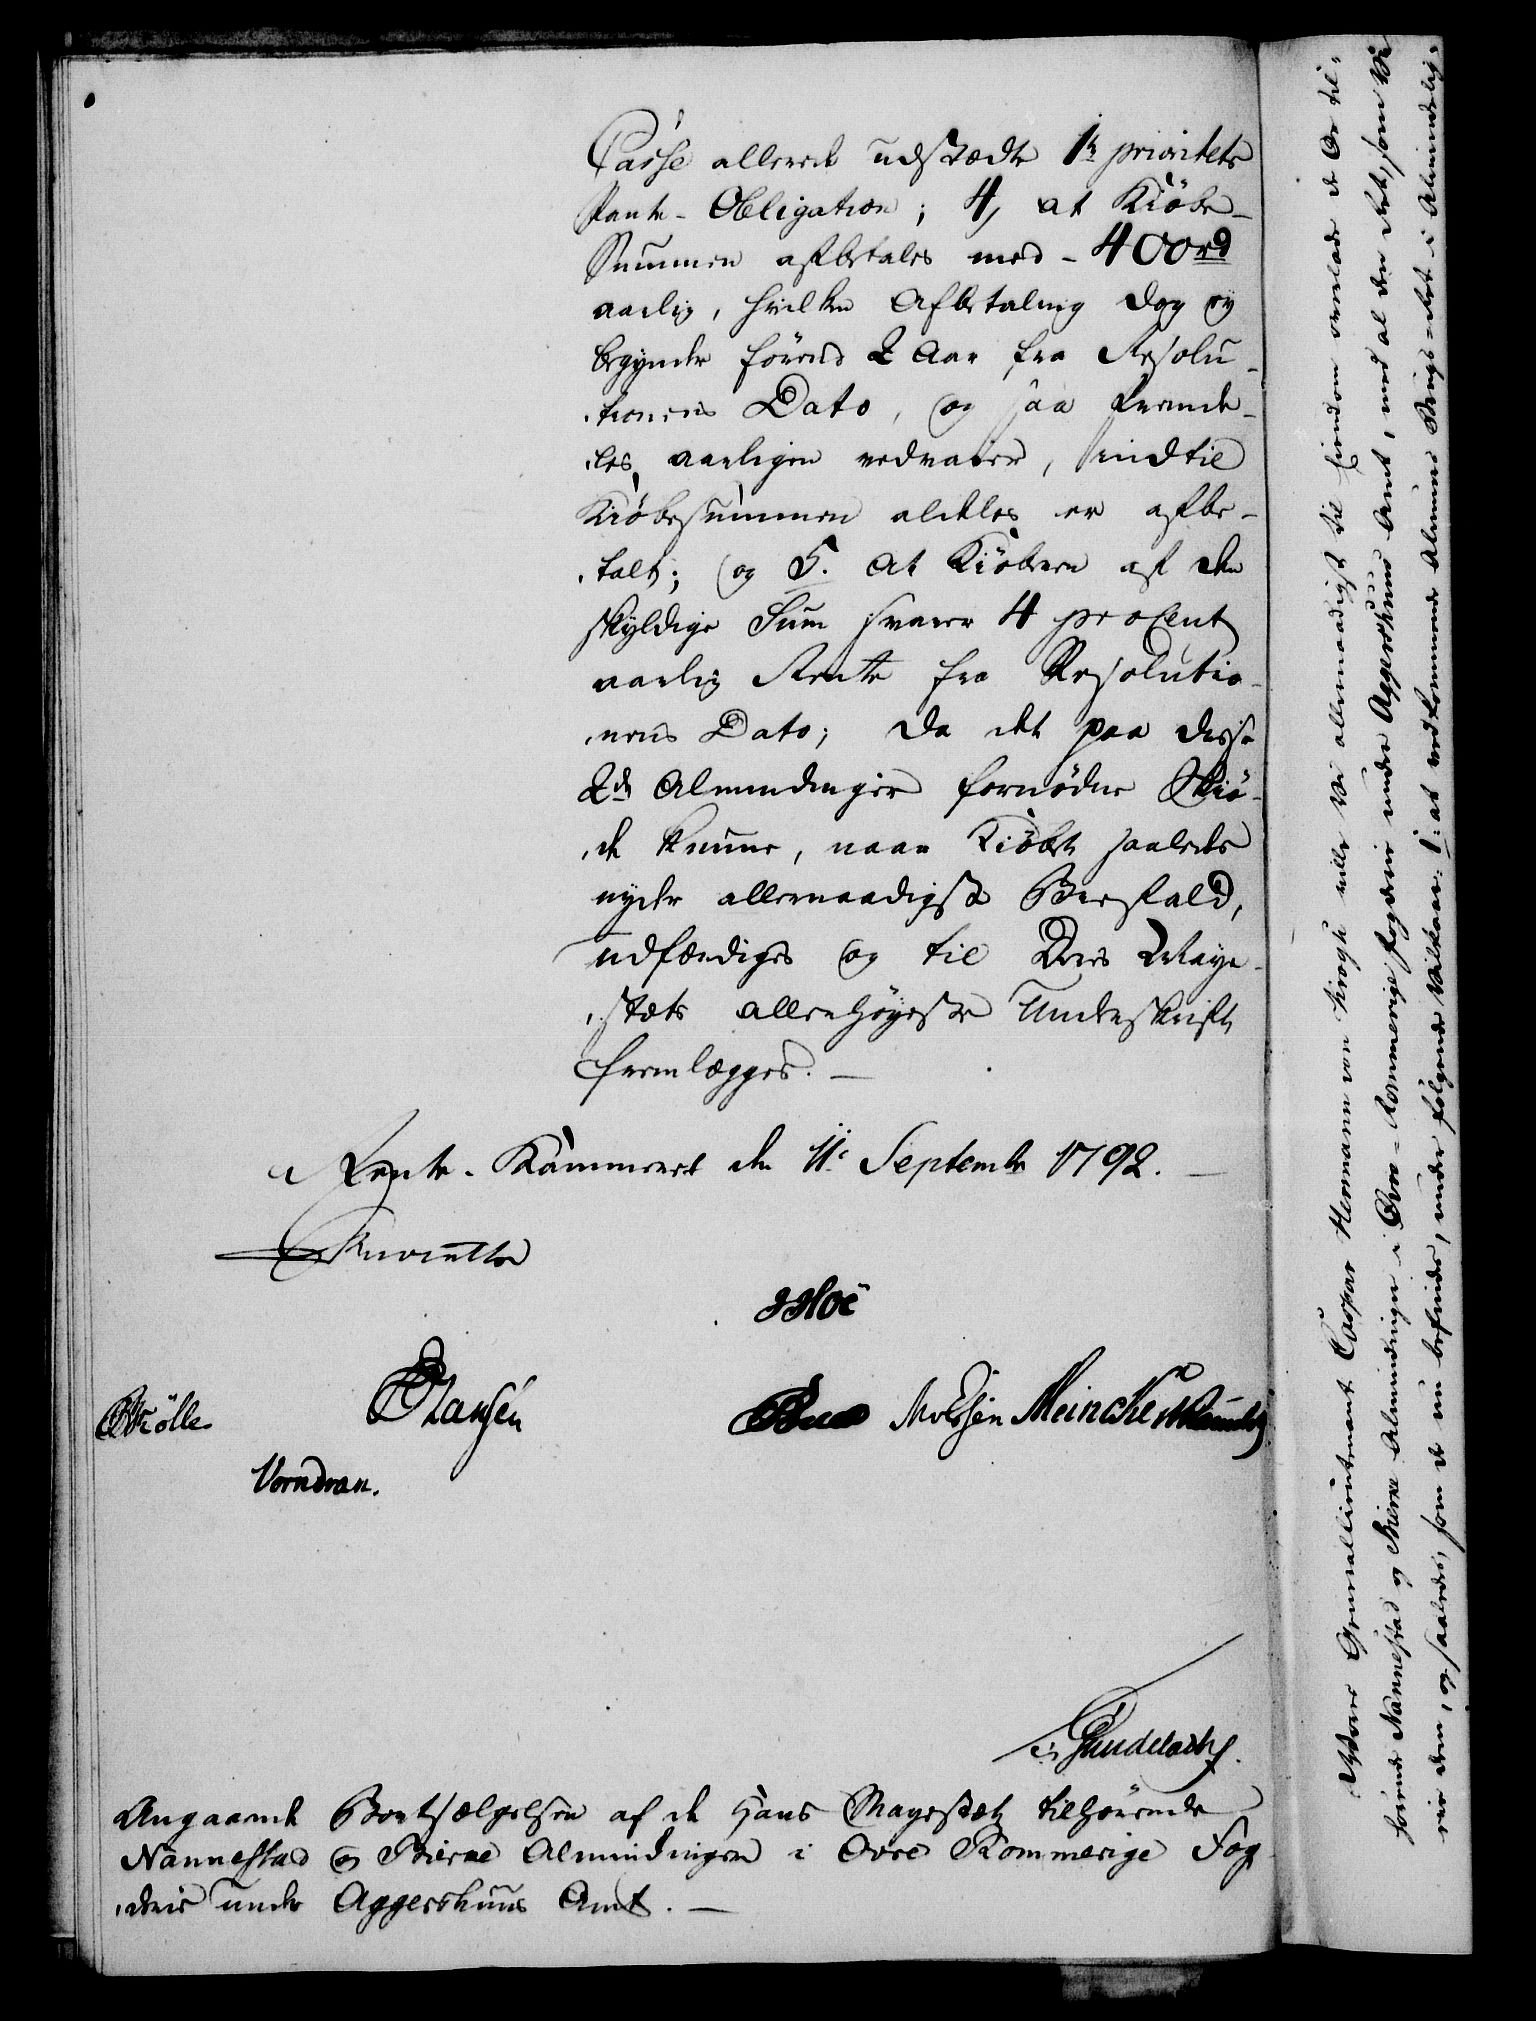 Casse allerede udstædte 1te prioritets
Pante-Obligation; 4, at Kiöbe-
Summen afbetales med - 400rd
aarlig, hvilken Afbetaling dog ey
begynder förend 2 Aar fra Resolu-
tionens Dato, og saa fremde-
les aarligen vedvarer, indtil
Kiöbesummen aldeles er afbe-
talt; og 5. at Kiöberen af den
skyldige Sum svarer 4 procent
aarlig Rente fra Resolutio-
nens Dato; da det paa disse
2de Almindinger fornödne Skiö-
de kunne, naar Kiöbet saaledes
nyder allernaadigst Biefald,
udfærdiges og til Deres Maye-
stæts allerhöyeste Underskrift
fremlægges. —
Rente-Kammeret den 11te September 1792. —
Reventlow
Hoë
Wölle
Hansen
Moessin Meincke
Vorndran.
Gundelach.
Angaaende Bortsælgelsen af de Hans Mayestæt tilhörende
Nannestad og Bierke Almindinger i Ovre Rommerige Fog-
derie under Aggershuus Amt. —
Vores Generallieutenant Caspar Hermann von Krogh ville Vi allernaadigst til Eiendom overlade de Os til-
hörende Nannestad og Bierke Almindinger i Övre-Rommerige Fogderie under Aggershuus Amt, med al den Ret, som Vi
eie dem, og saaledes, som de nu befindes, under følgende Vilkaar: 1: at vedkommende Almues Brugs-Ret i Almindin-